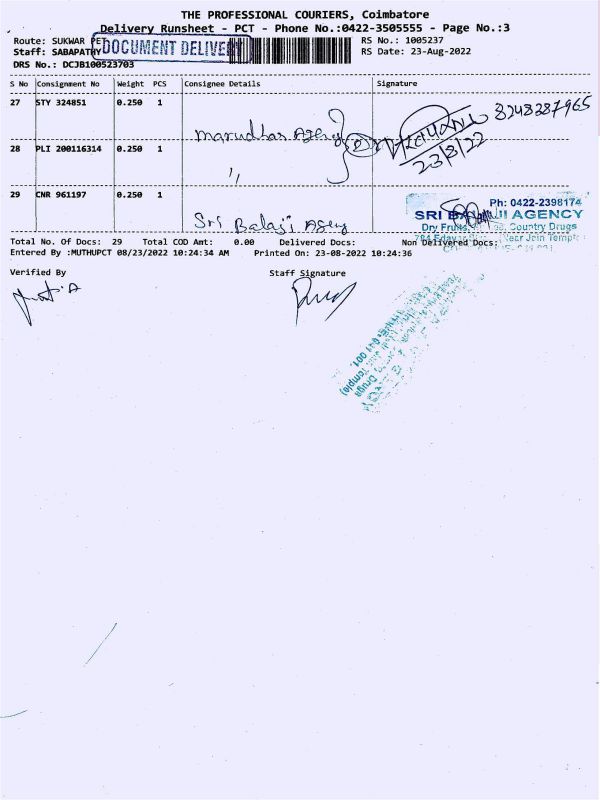 THE PROFESSIONAL COURIERS, Coimbatore
Delivery Runsheet - PCT - Phone No.:0422-3505555 - Page No.:3
Route: SUKWAR PET
DOCUMENT DELIVE
RS No.: 1005237
Staff: SABAPATHY
RS Date: 23-Aug-2022
DRS No.: DCJB100523703
S No Consignment No Weight PCS Consignee Details Signature
27 STY 324851 0.250 1
8248287965
Marudhar Agency
28 PLI 200116314 0.250 1
23/8/22
"
29 CNR 961197 0.250 1
Ph: 0422-2398174
SRI BALAJI AGENCY
Dry Fruits, Country Drugs
Near Jain Temple
Sri Balaji Agency
Total No. Of Docs: 29 Total COD Amt: 0.00 Delivered Docs: Non Delivered Docs:
Entered By :MUTHUPCT 08/23/2022 10:24:34 AM Printed On: 23-08-2022 10:24:36
Verified By Staff Signature
001.
Temple)
Drugs